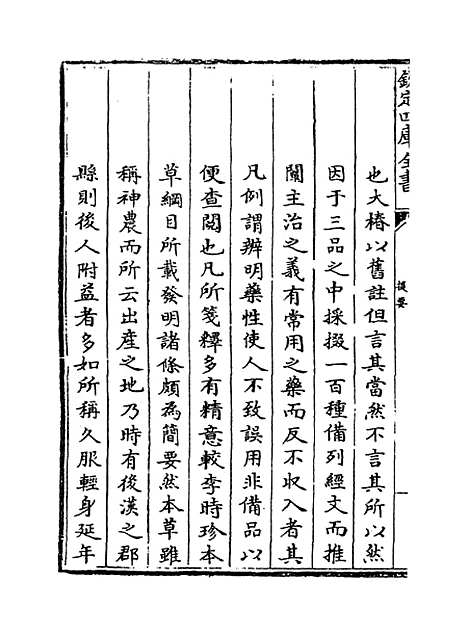 欽定四庫全書
提要
也大椿以舊註但言其當然不言其所以然
因于三品之中採掇一百種備列經文而推
闡主治之義有常用之藥而反不收入者其
凡例謂辨明藥性使人不致誤用非備品以
便查閱也凡所箋釋多有精意較李時珍本
草綱目所載發明諸條頗為簡要然本草雖
稱神農而所云出產之地乃時有後漢之郡
縣則後人附益者多如所稱久服輕身延年